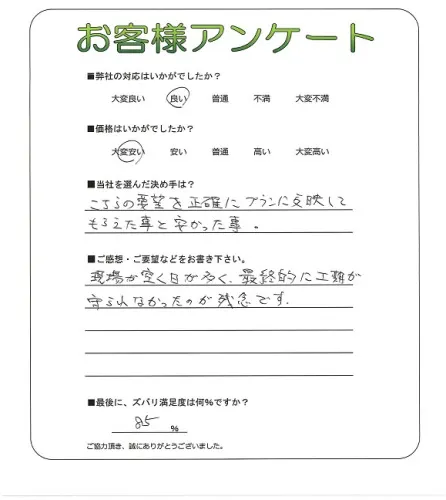 お客様アンケート
■弊社の対応はいかがでしたか？
大変良い 良い 普通 不満 大変不満
■価格はいかがでしたか？
大変安い 安い 普通 高い 大変高い
■当社を選んだ決め手は？
こちらの要望を正確にプランに反映して
もらえた事と安かった事。
■ご感想・ご要望などをお書き下さい。
現場が空く日が多く、最終的に工期が
守られなかったのが残念です.
■最後に、ズバリ満足度は何%ですか？
85 %
ご協力頂き、誠にありがとうございました。